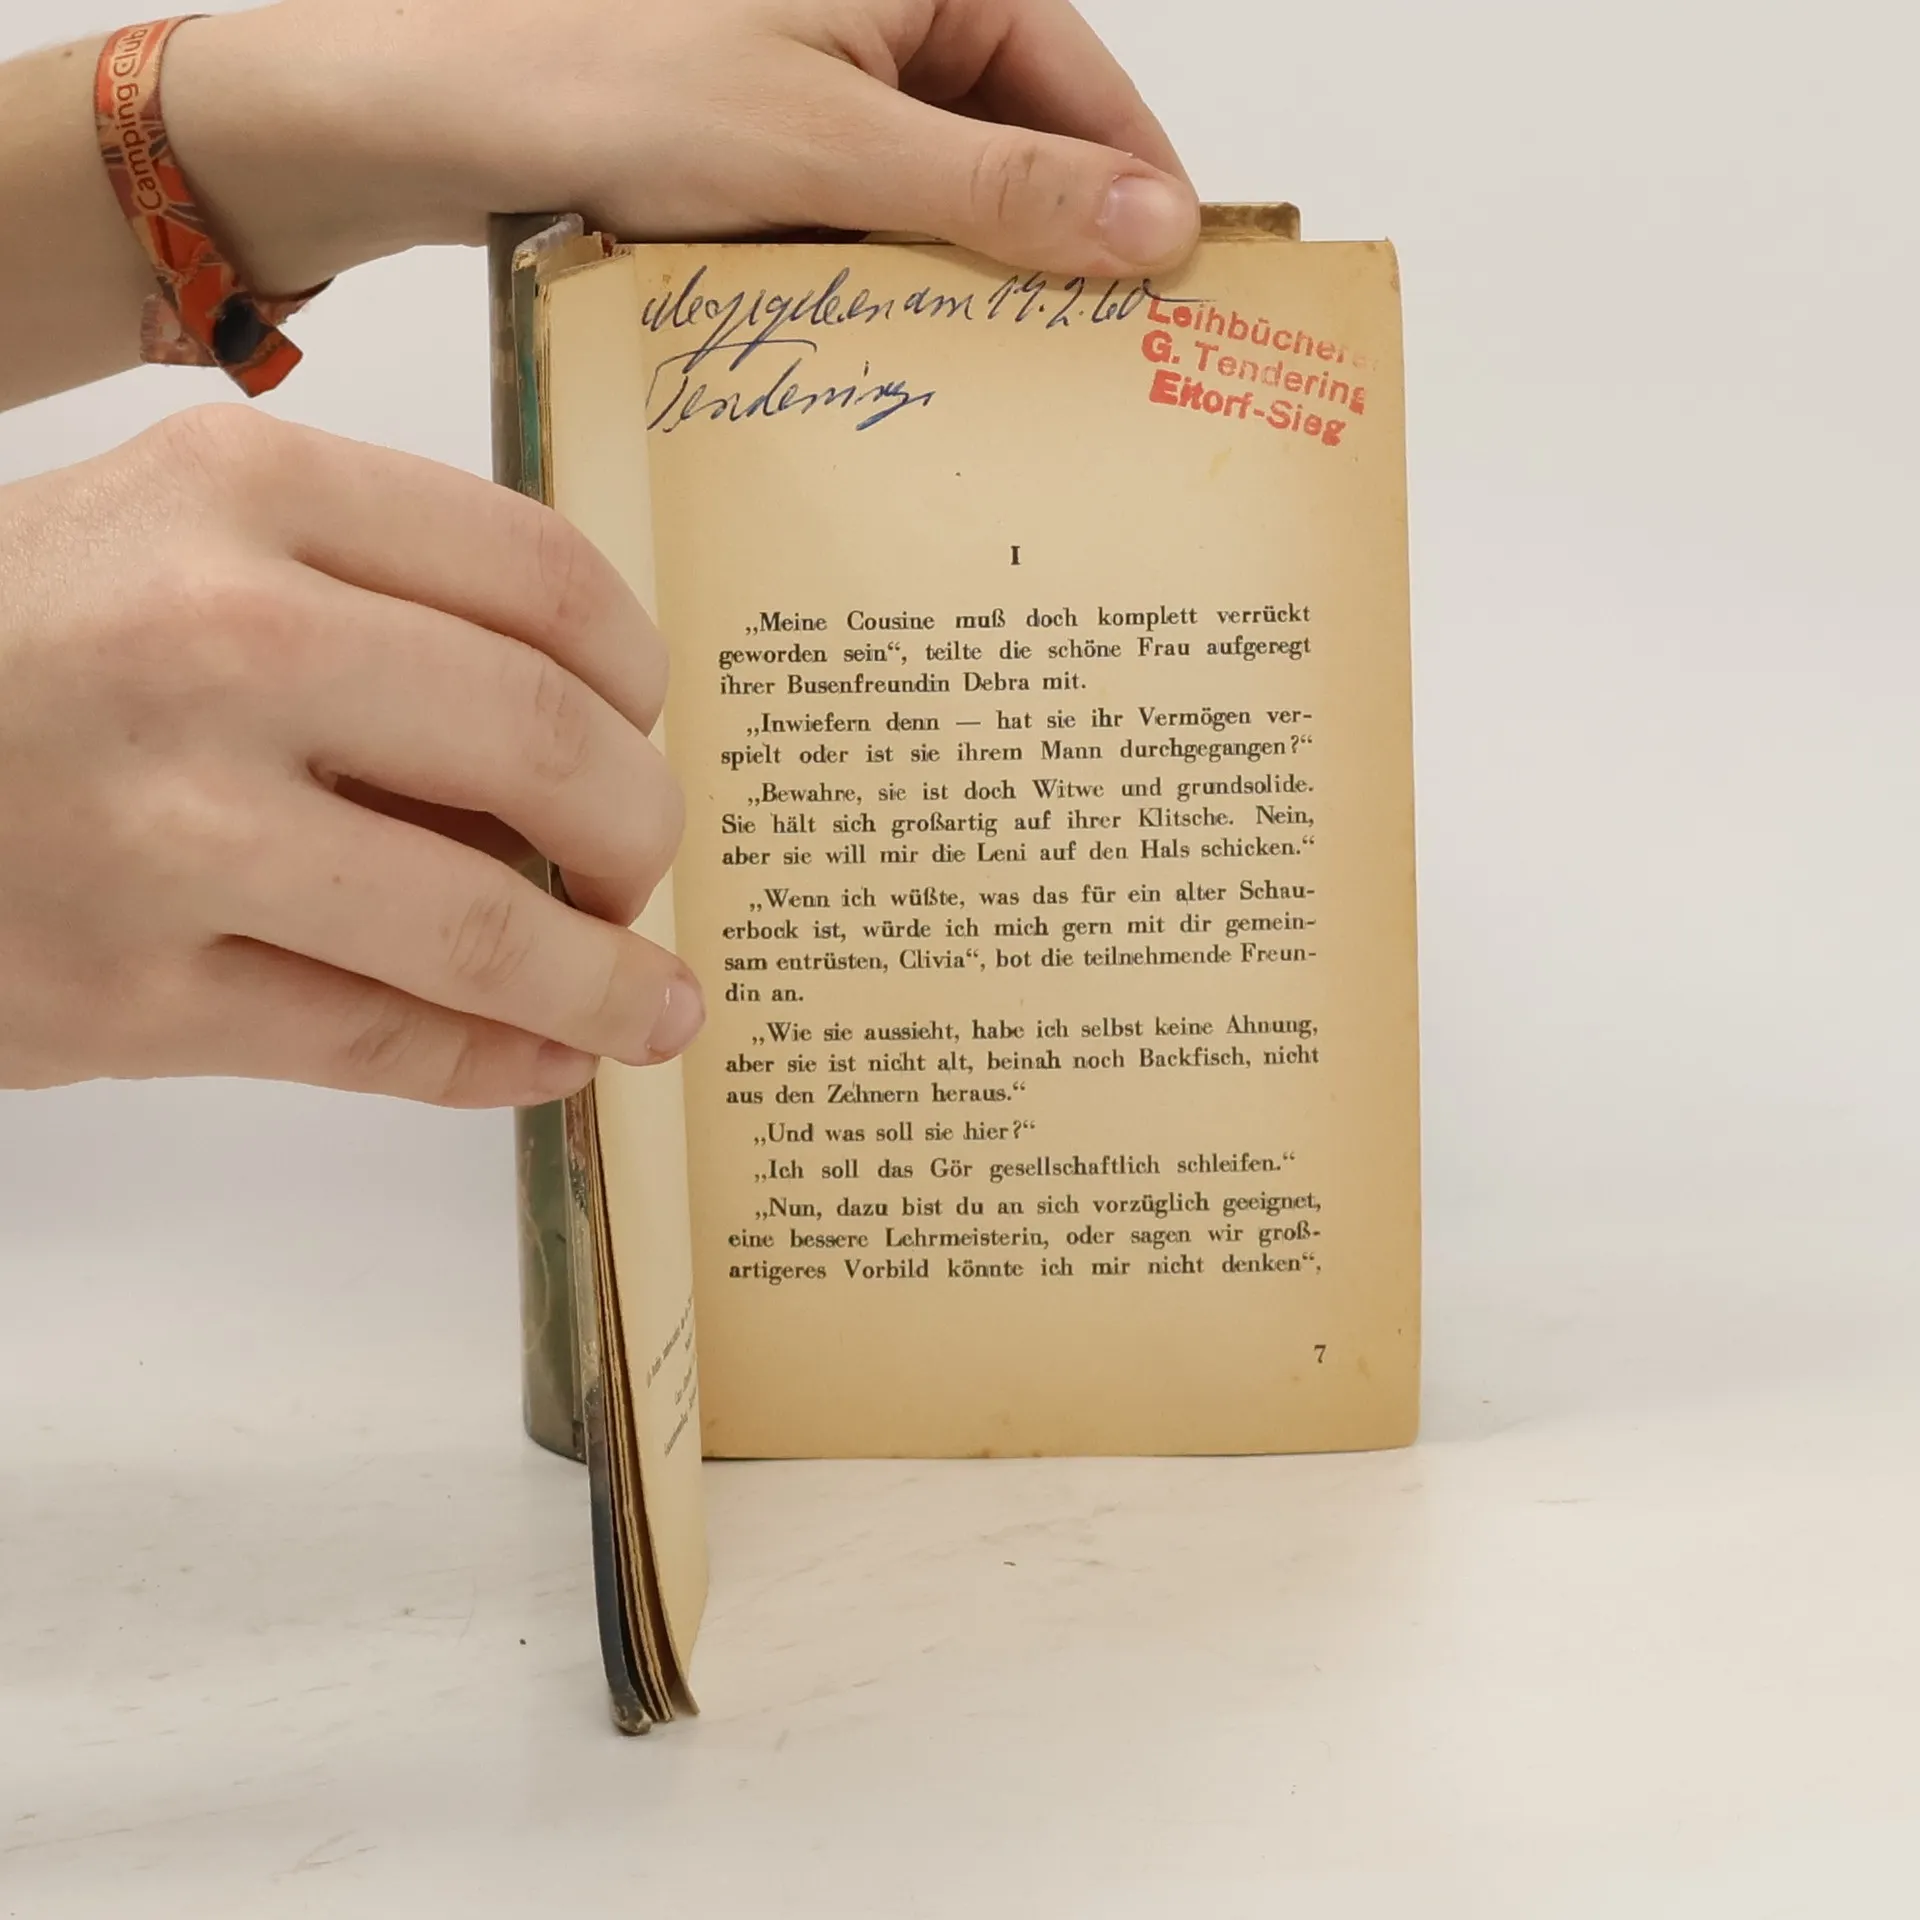 Camping Club
am 19.2.60
Tendering
Leihbücherei
G. Tendering
Eitorf-Sieg
I
„Meine Cousine muß doch komplett verrückt
geworden sein“, teilte die schöne Frau aufgeregt
ihrer Busenfreundin Debra mit.
„Inwiefern denn — hat sie ihr Vermögen ver-
spielt oder ist sie ihrem Mann durchgegangen?“
„Bewahre, sie ist doch Witwe und grundsolide.
Sie hält sich großartig auf ihrer Klitsche. Nein,
aber sie will mir die Leni auf den Hals schicken.“
„Wenn ich wüßte, was das für ein alter Schau-
erbock ist, würde ich mich gern mit dir gemein-
sam entrüsten, Clivia“, bot die teilnehmende Freun-
din an.
„Wie sie aussieht, habe ich selbst keine Ahnung,
aber sie ist nicht alt, beinah noch Backfisch, nicht
aus den Zehnern heraus.“
„Und was soll sie hier?“
„Ich soll das Gör gesellschaftlich schleifen.“
„Nun, dazu bist du an sich vorzüglich geeignet,
eine bessere Lehrmeisterin, oder sagen wir groß-
artigeres Vorbild könnte ich mir nicht denken“,
7